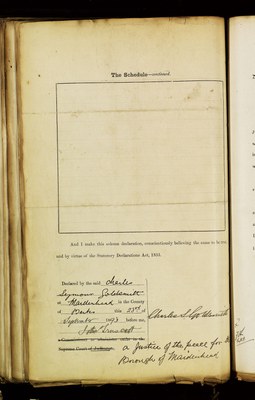 The Schedule—continued.
And I make this solemn declaration, conscientiously believing the same to be true
and by virtue of the Statutory Declarations Act, 1835.
Declared by the said Charles
Seymour Goldsmith
at Maidenhead in the County
of Berks this 23rd of
September before me,
Charles S Goldsmith
A Commissioner to administer oaths in the
Supreme Court of Judicature.
a Justice of the peace for
Borough of Maidenhead